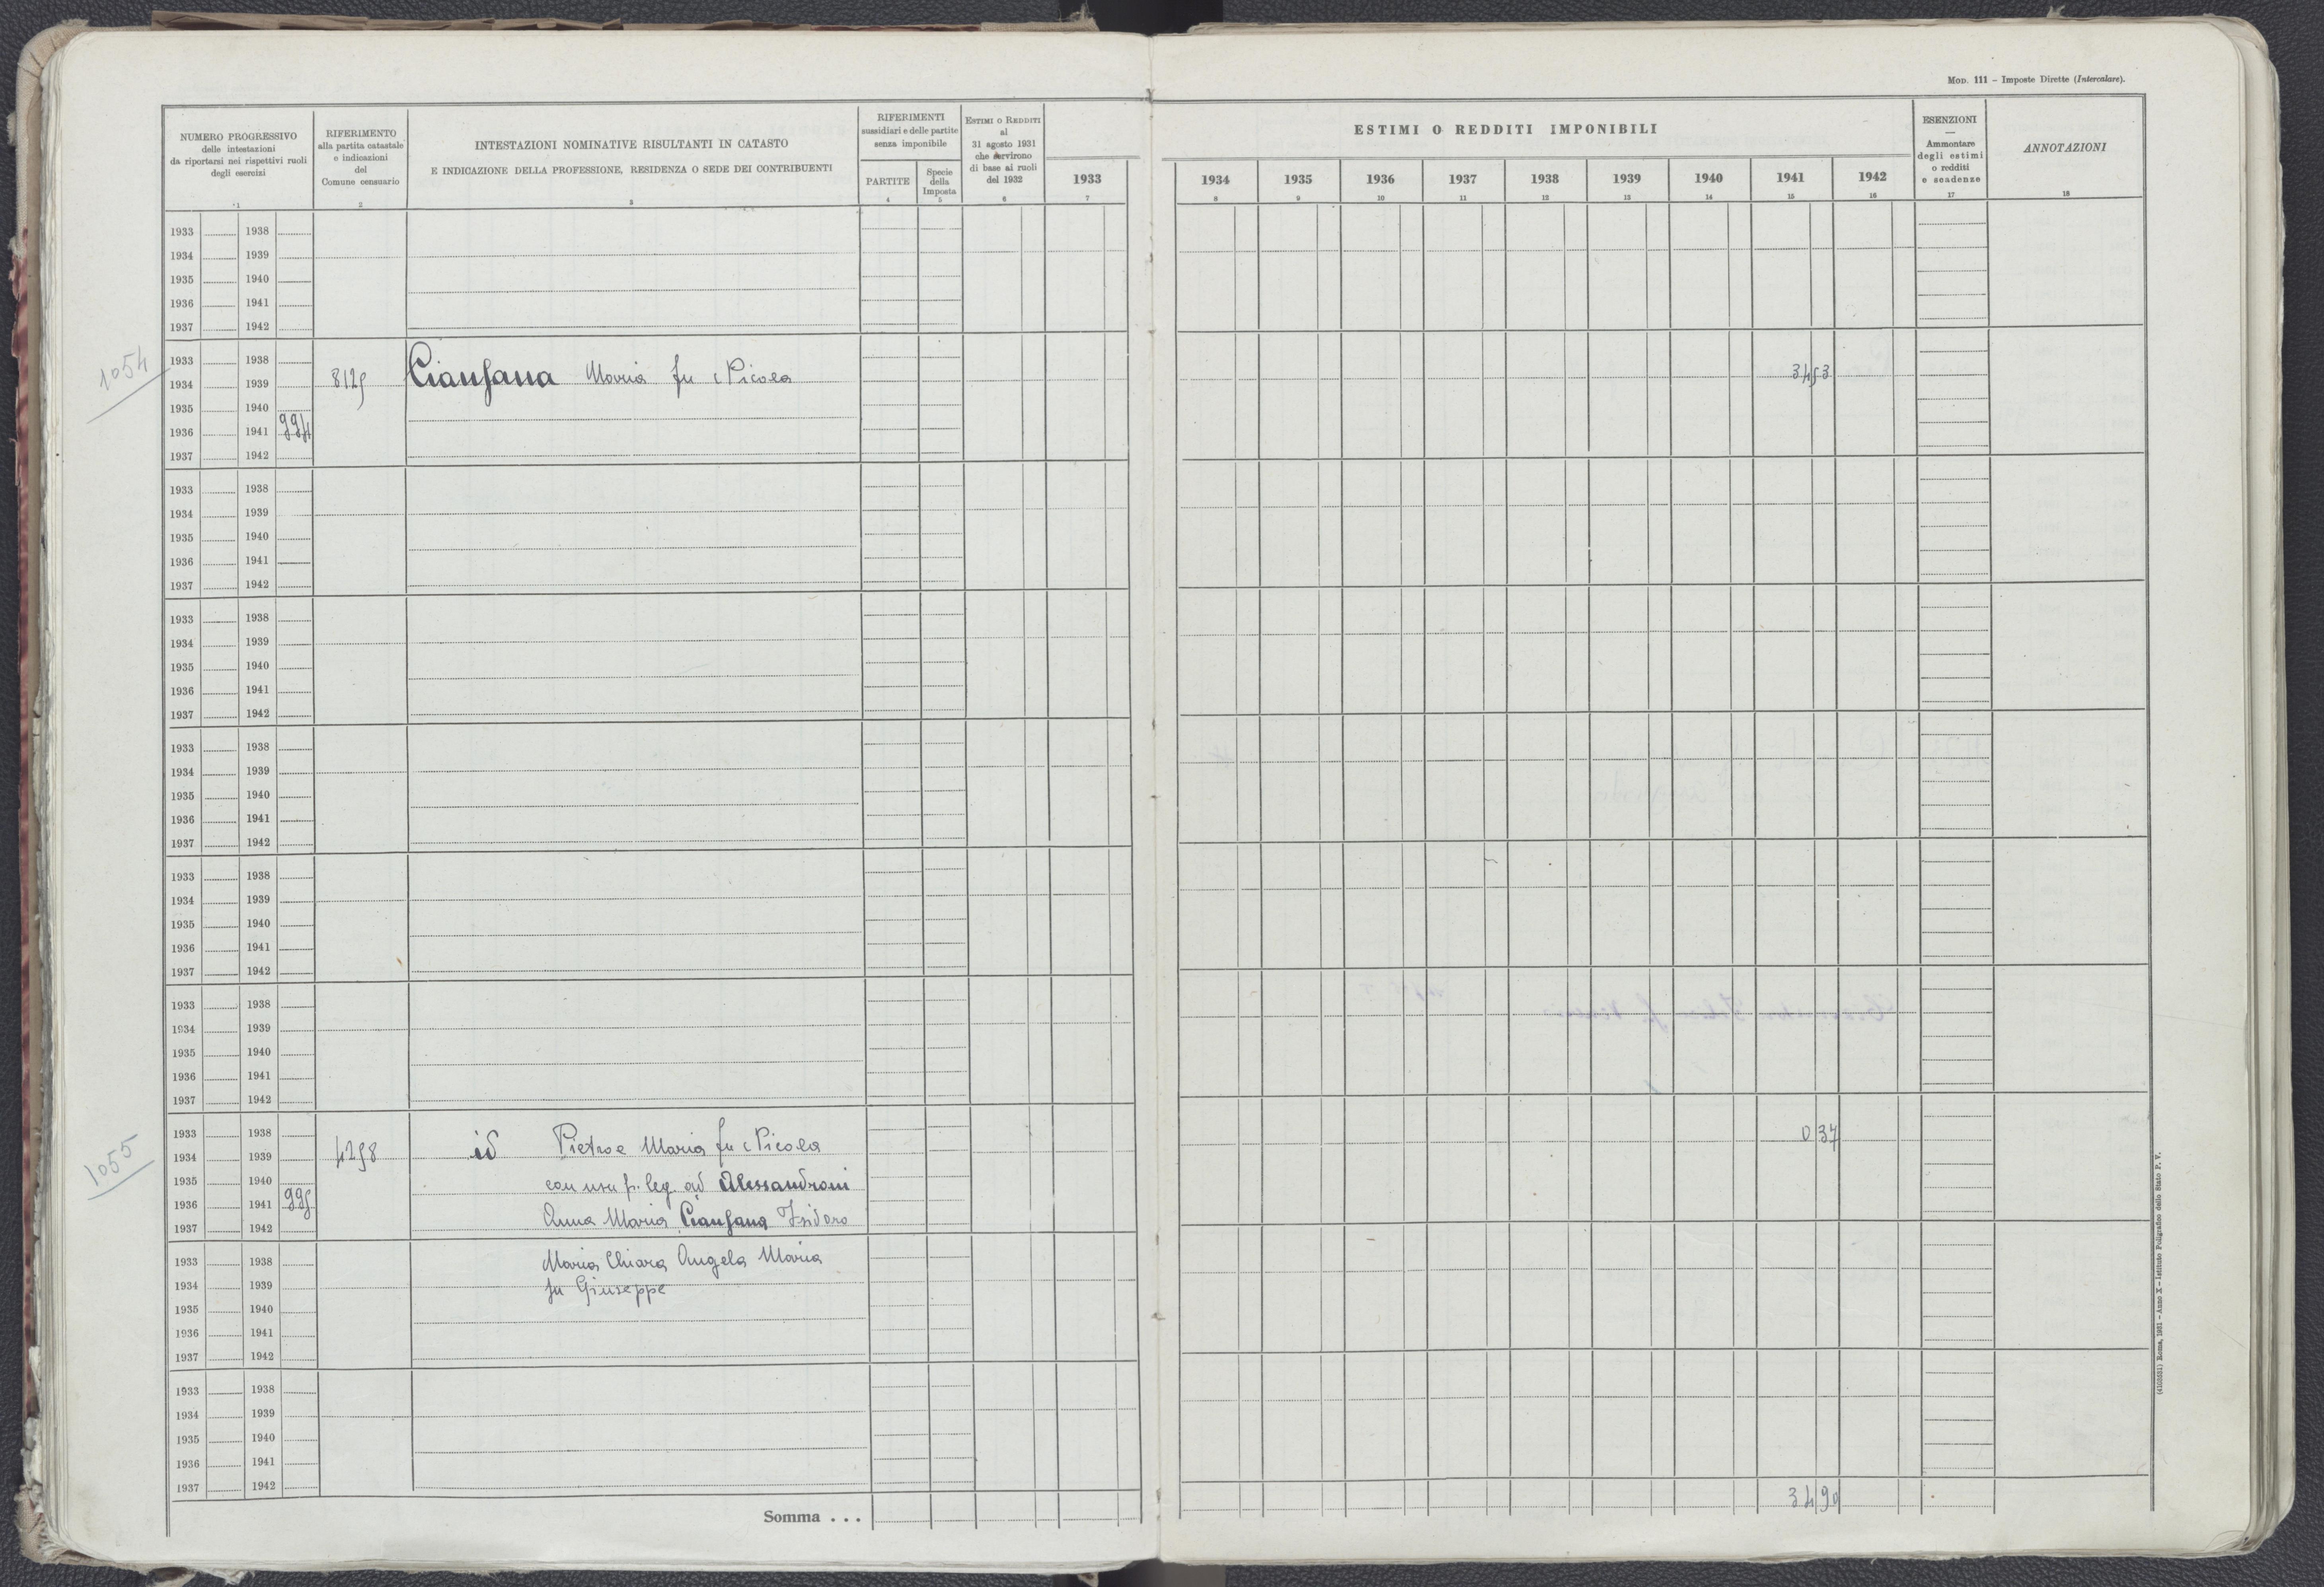 MOD. 111 – Imposte Dirette (Intercalare).
NUMERO PROGRESSIVO
delle intestazioni
da riportarsi nei rispettivi ruoli
degli esercizi
1
RIFERIMENTO
alla partita catastale
e indicazioni
del
Comune censuario
2
INTESTAZIONI NOMINATIVE RISULTANTI IN CATASTO
E INDICAZIONE DELLA PROFESSIONE, RESIDENZA O SEDE DEI CONTRIBUENTI
3
RIFERIMENTI
sussidiari e delle partite
senza imponibile
PARTITE
4
Specie
della
Imposta
5
ESTIMI O REDDITI
al
31 agosto 1931
che servirono
di base ai ruoli
del 1932
6
1933
7
ESTIMI O REDDITI IMPONIBILI
1934 1935 1936 1937 1938 1939 1940 1941 1942
8 9 10 11 12 13 14 15 16
ESENZIONI
—
Ammontare
degli estimi
o redditi
e scadenze
17
ANNOTAZIONI
18
1933 1938
1934 1939
1935 1940
1936 1941
1937 1942
1054
1933 1938
1934 1939 8125 Cianfana Maria fu Nicola 3453
1935 1940
1936 1941 994
1937 1942
1933 1938
1934 1939
1935 1940
1936 1941
1937 1942
1933 1938
1934 1939
1935 1940
1936 1941
1937 1942
1933 1938
1934 1939
1935 1940
1936 1941
1937 1942
1933 1938
1934 1939
1935 1940
1936 1941
1937 1942
1933 1938
1934 1939
1935 1940
1936 1941
1937 1942
1055
1933 1938 0 37
1934 1939 4258 id Pietro e Maria fu Nicola
1935 1940 con usu p. leg. ad Alessandroni
1936 1941 995
1937 1942 Anna Maria Cianfana Isidoro
1933 1938 Maria Chiara Angela Maria
1934 1939 fu Giuseppe
1935 1940
1936 1941
1937 1942
1933 1938
1934 1939
1935 1940
1936 1941
1937 1942
Somma . . . 34 90
(4103531) Roma, 1931 – Anno X – Istituto Poligrafico dello Stato P. V.